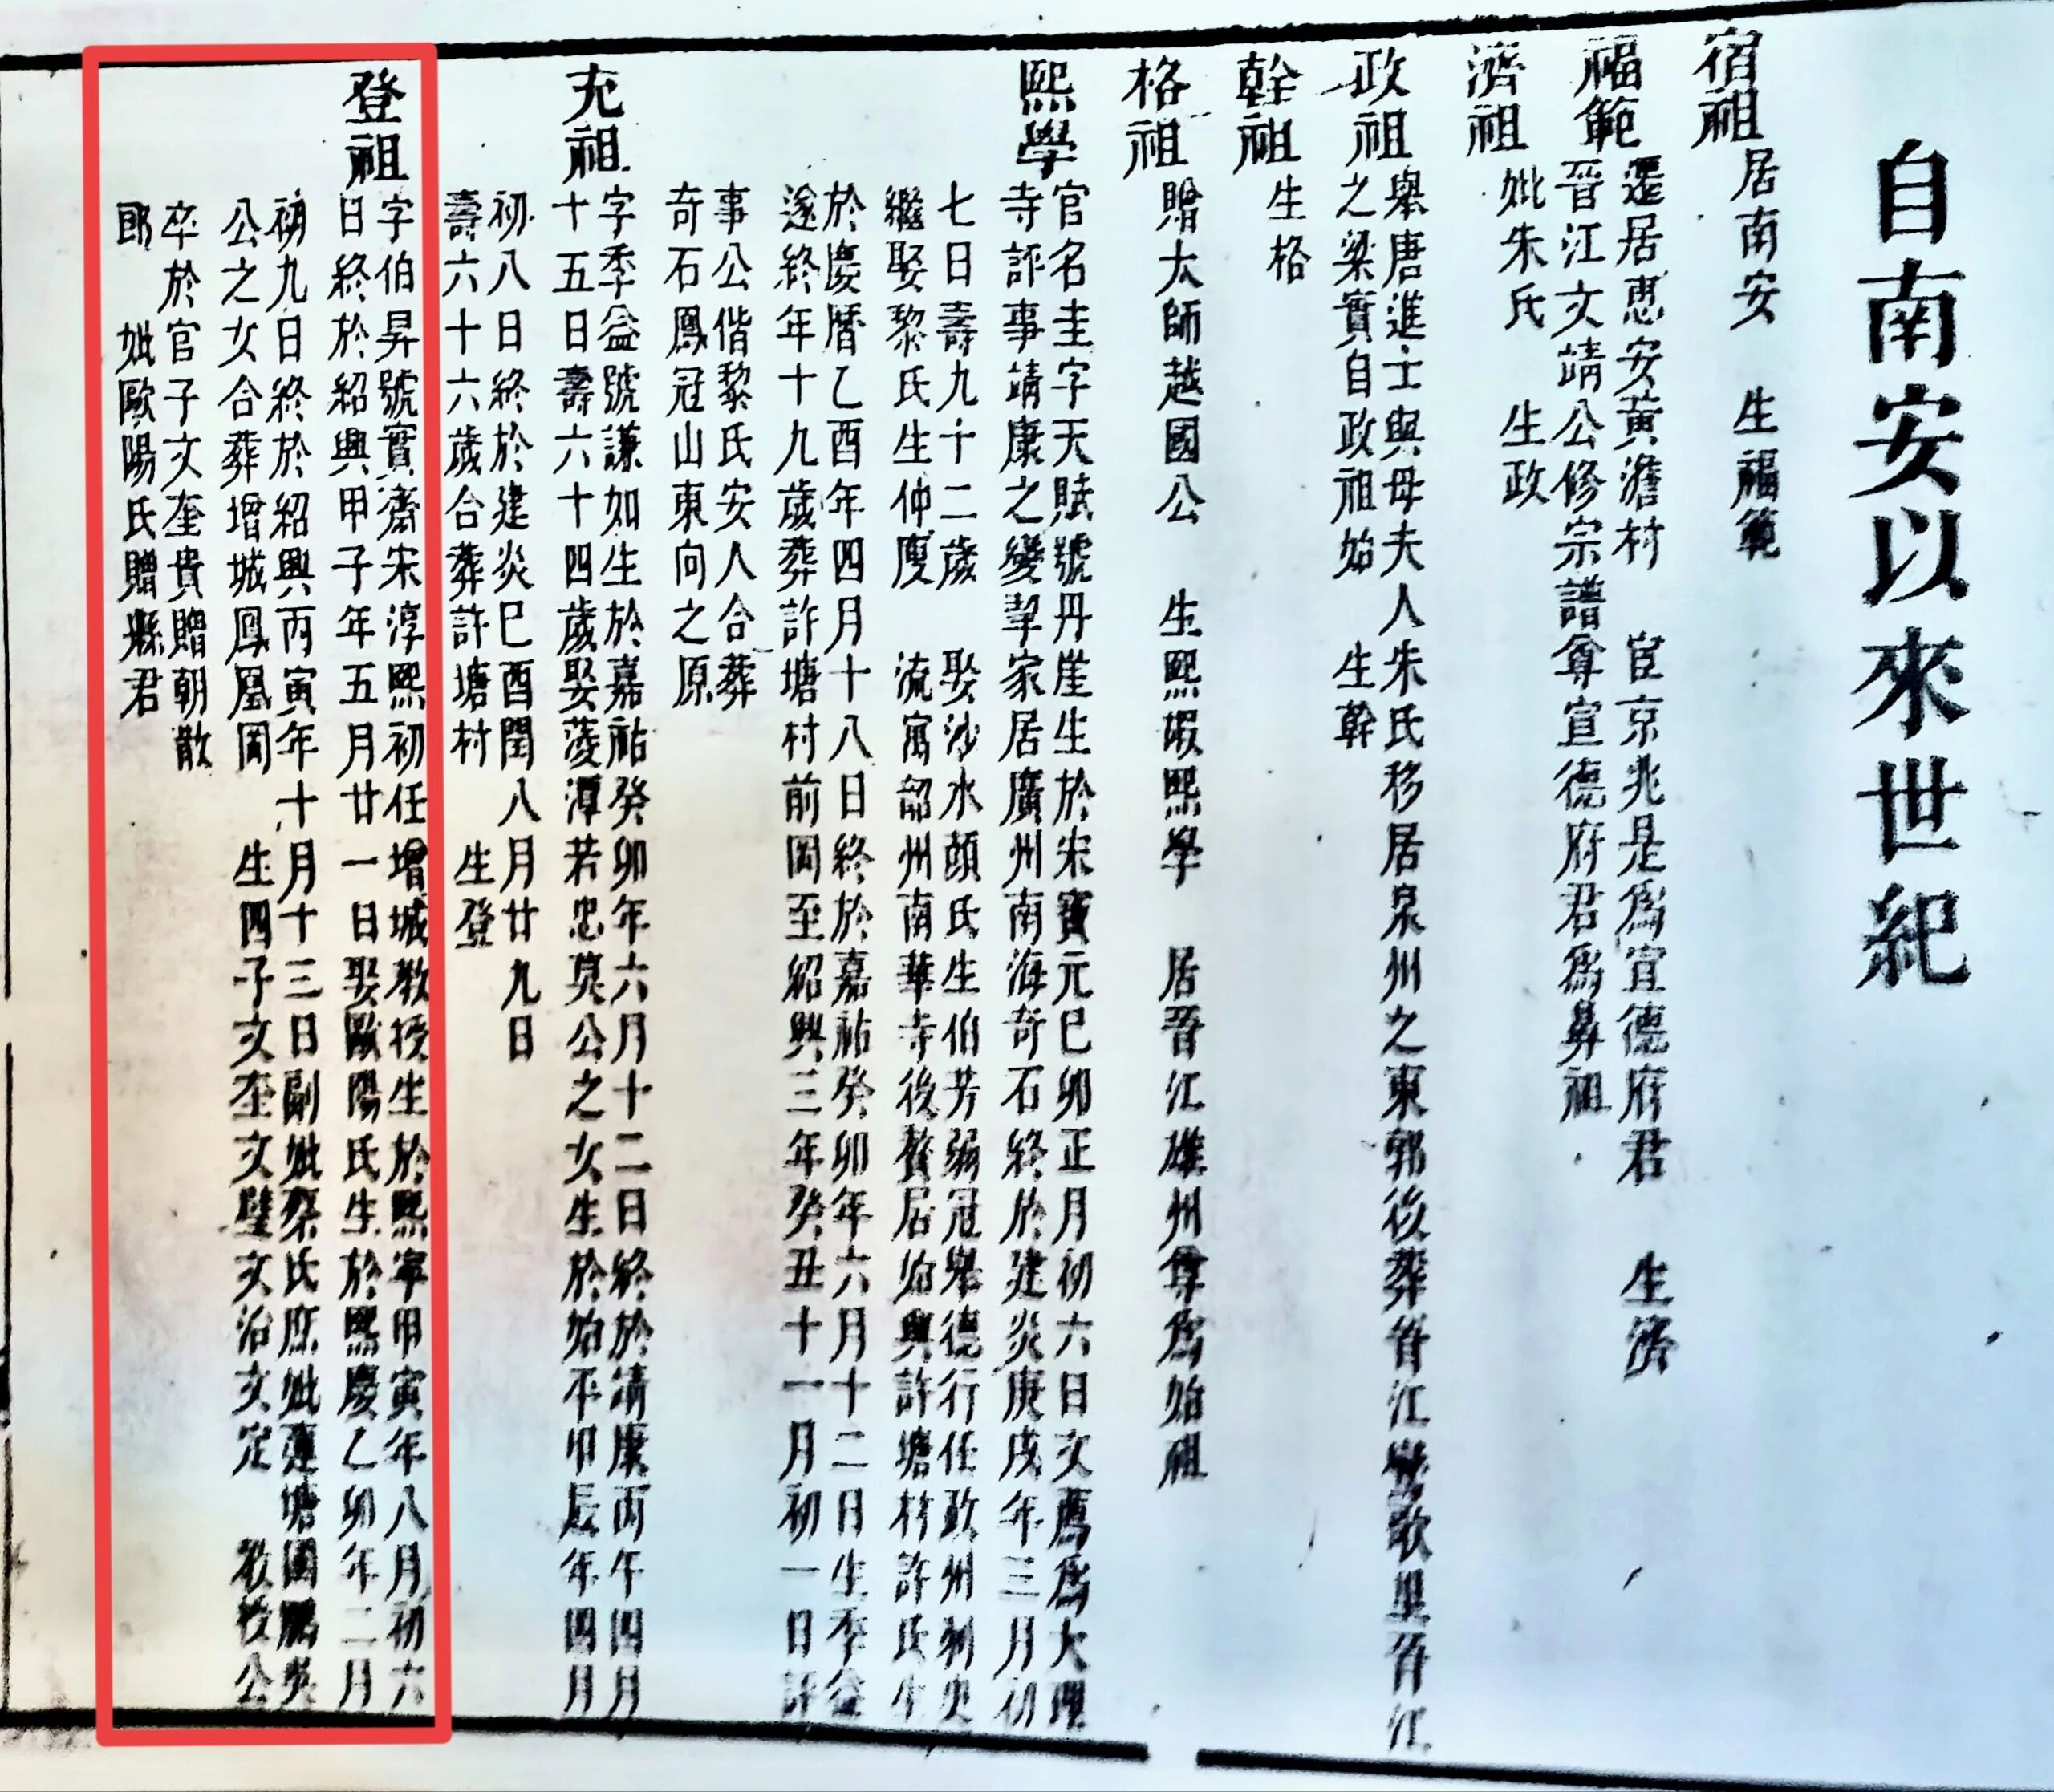 自南安以來世紀
宿祖
居南安 生福範
福範
遷居惠安黃澹村 宦京兆是爲宣德府君 生濟
晉江文靖公修宗譜尊宣德府君爲鼻祖
濟祖
妣朱氏 生政
政祖
舉唐進士與母夫人朱氏移居泉州之東郭後葬晉江欒歌里晉江
之梁實自政祖始 生幹
幹祖
生格
格祖
贈太師越國公 生熙嘏熙學 居晉江雄州尊爲始祖
熙學
官名圭字天賦號丹崖生於宋寶元巳卯正月初六日文薦爲大理
寺評事靖康之變挈家居廣州南海奇石終於建炎庚戌年三月初
七日壽九十二歲 娶沙水顏氏生伯芳弱冠舉德行任政州刺史
繼娶黎氏生仲廋 流寓韶州南華寺後贅居始興許塘村許氏生
於慶曆乙酉年四月十八日終於嘉祐癸卯年六月十二日生季益
遂終年十九歲葬許塘村前岡至紹興三年癸丑十一月初一日評
事公偕黎氏安人合葬
奇石鳳冠山東向之原
充祖
字季益號謙如生於嘉祐癸卯年六月十二日終於靖康丙午四月
十五日壽六十四歲娶菱潭若忠莫公之女生於始平甲辰年四月
初八日終於建炎巳酉閏八月廿九日
壽六十六歲合葬許塘村 生登
登祖
字伯昇號實齋宋淳熙初任增城教授生於熙寧甲寅年八月初六
日終於紹興甲子年五月廿一日娶歐陽氏生於熙慶乙卯年二月
初九日終於紹興丙寅年十月十三日副妣蔡氏庶妣蓮塘國鵬吳
公之女合葬增城鳳凰岡 生四子文奎文璧文治文定 教授公
卒於官子文奎貴贈朝散
郎 妣歐陽氏贈縣君